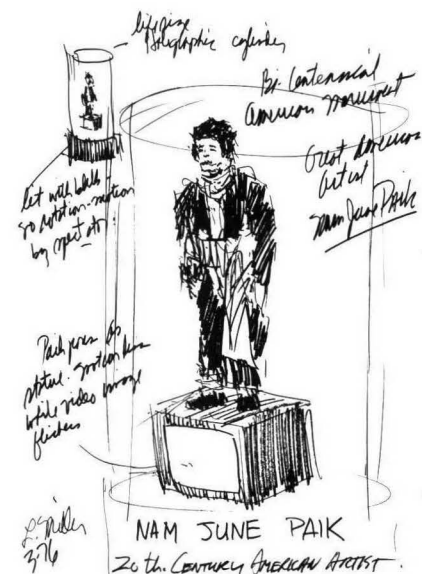 life size
Holographic cylinder
Bi-Centennial
American Monument
Great American
Artist
Nam June Paik
lit with
so rotation-motion
by spectator
Paik poses as
statue.
while video image
flickers
3-76
NAM JUNE PAIK
20th. CENTURY AMERICAN ARTIST.